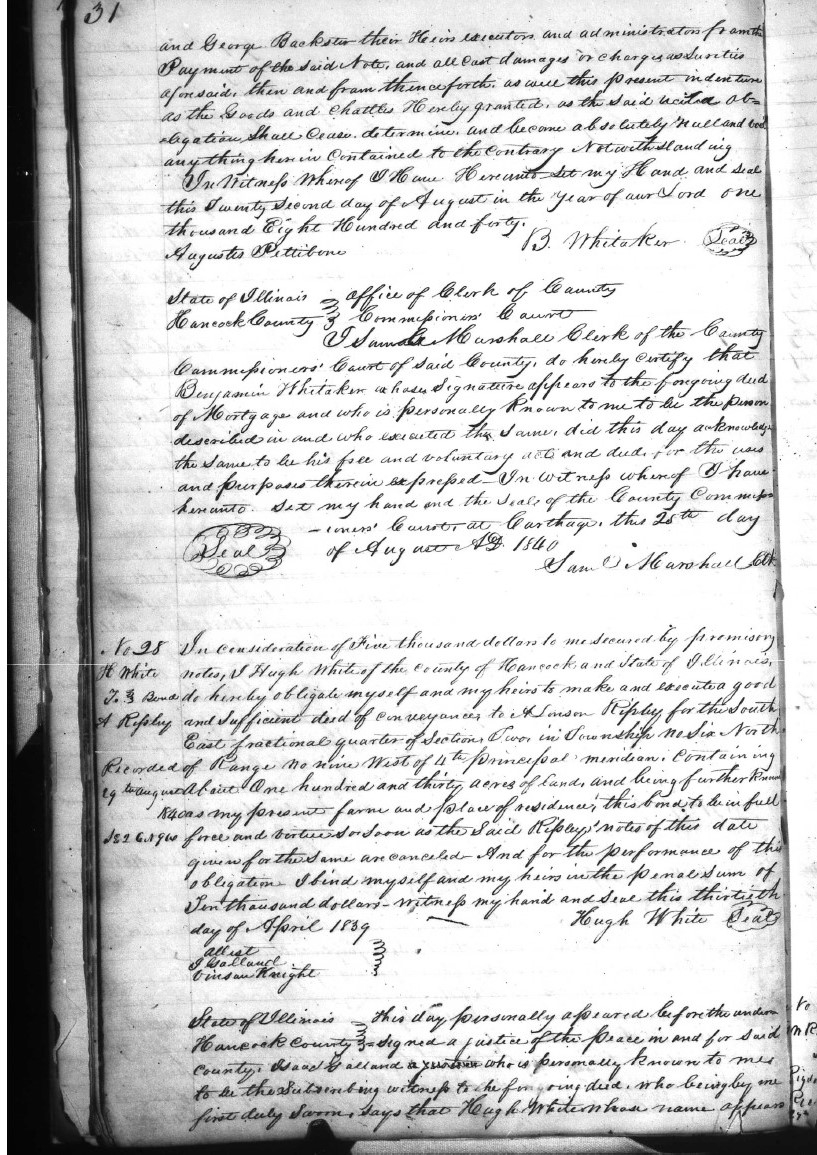 31
and George Backster their Heirs executors and administrators from the
Payment of the said Note, and all cost damages or charges as Sureties
aforesaid, then and from thenceforth, as well this present indenture
as the Goods and Chattles Hereby granted, as the said recited ob=
=ligation Shall Cease, determine, and become absolutely Null and void
anything herein Contained to the Contrary Notwithstanding
In Witness Whereof I Have Hereunto Set my Hand and Seal
this Twenty Second day of August in the Year of our Lord one
thousand Eight Hundred and forty.
B. Whitaker Seal
Augustes Pettibone
State of Illinois } Office of Clerk of County
Hancock County } Commissioners' Court
I Samuel Marshall Clerk of the County
Commissioners' Court of Said County, do hereby certify that
Benjamin Whitaker whose Signature appears to the forgoing deed
of Mortgage and who is personally known to me to be the person
described in and who executed the same, did this day acknowledge
the same to be his free and voluntary act and deed, for the uses
and purposes therein expressed – In witness whereof I have
herunto set my hand and the Seal of the County Commiss=
Seal
–ioners' Court, at Carthage, this 28th day
of August AD. 1840
Saml Marshall Clk
No 28 In consideration of Five thousand dollars to me secured by promisory
H White notes, I Hugh White of the County of Hancock and State of Illinois,
To } Bond do hereby obligate myself and my heirs to make and execute a good
A Ripley and sufficient deed of conveyance, to Alonson Ripley for the South
East fractional quarter of Section, Two, in Township no Six North
Recorded of Range no nine West of 4th principal meridian, Containing
29th August About One hundred and thirty acres of land, and being further Known
1840 as my present farm and place of residence, this bond to be in full
force and virtue so soon as the Said Ripley's notes of this date
given for the same are canceled – And for the performance of this
obligation I bind myself and my heirs in the penal Sum of
Ten thousand dollars – witness my hand and Seal this thirtieth
day of April 1839 — Hugh White Seal
attest
I Galland
Vinson Knight
State of Illinois } This day personally appeared before the under
Hancock County } =signed a justice of the Peace in and for Said
County, Isaac Galland who is personally known to me
to be the Subscribing witness to the forgoing deed, who being by me
first duly sworn, says that Hugh White whose name appears
No